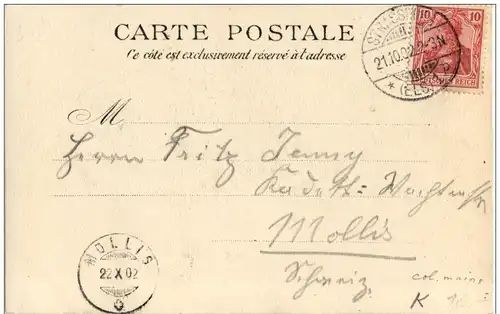 CARTE POSTALE
Ce côté est exclusivement réservé à l'adresse
21.10.02. 2-3N
* (ELS)
10 10
REICH
M
Herrn Fritz Jenny
Mollis
Schweiz.
MOLLIS
22 X 02
col. mains
K